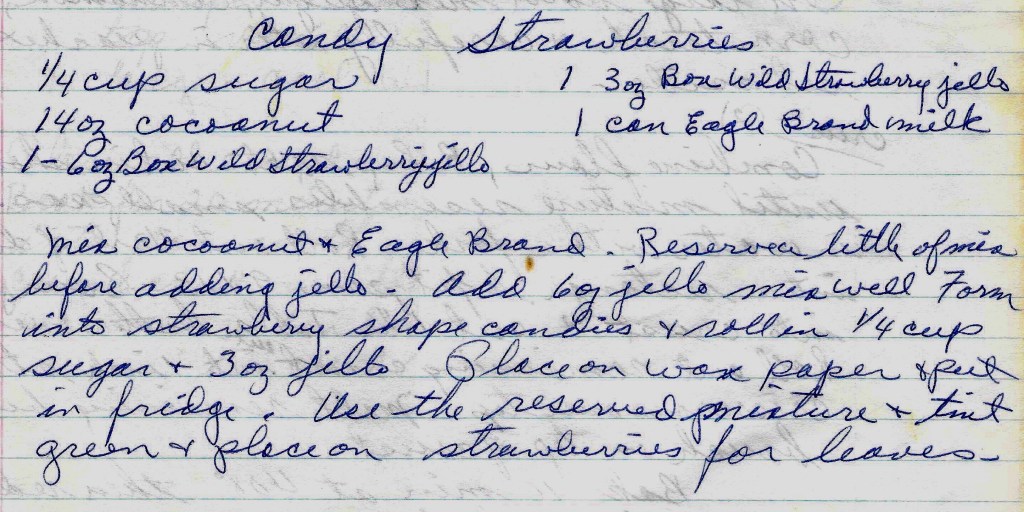 Candy Strawberries
1/4 cup sugar 1 3oz Box Wild Strawberry jello
14oz cocoanut 1 can Eagle Brand milk
1-6oz Box Wild Strawberry jello
Mix cocoanut + Eagle Brand. Reserve a little of mix
before adding jello - Add 6oz jello mix well Form
into strawberry shape candies + roll in 1/4 cup
sugar + 3oz jello Place on wax paper + put
in fridge. Use the reserved mixture + tint
green + place on strawberries for leaves-